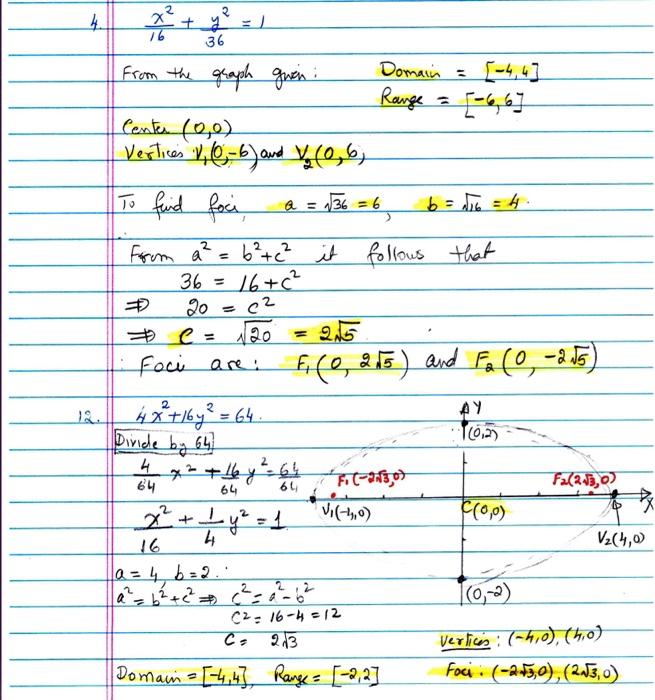 4. x²/16 + y²/36 = 1
From the graph given: Domain = [-4,4]
Range = [-6,6]
Center (0,0)
Vertices V₁(0,-6) and V₂(0,6,
To find foci, a = √36 = 6, b = √16 = 4.
From a² = b²+c² it follows that
36 = 16+c²
⇒ 20 = c²
⇒ c = √20 = 2√5
∴ Foci are: F₁(0, 2√5) and F₂(0, -2√5)
12. 4x²+16y² = 64.
Divide by 64
4/64 x² + 16/64 y² = 64/64
x²/16 + 1/4 y² = 1
a = 4, b = 2.
a² = b²+c² ⇒ c² = a²-b²
c² = 16-4 = 12
c = 2√3
Domain = [-4,4], Range = [-2,2]
Y
(0,2)
F₁(-2√3,0) F₂(2√3,0)
V₁(-4,0) C(0,0) X
V₂(4,0)
(0,-2)
Vertices: (-4,0), (4,0)
Foci: (-2√3,0), (2√3,0)